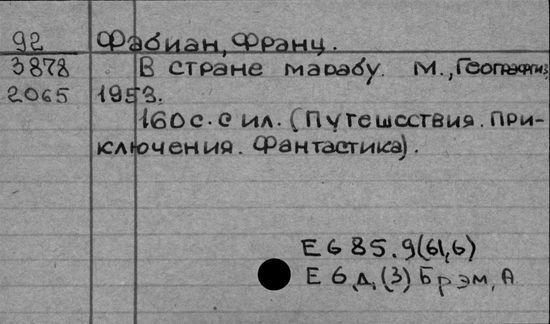 92 Фабиан, Франц.
3878 В стране марабу. М., Географгиз,
2065 1953.
160с. с ил. (Путешствия. При-
ключения. Фантастика).
Е 6 85.9(61,6)
Е 6,д,(3) Брэм, А